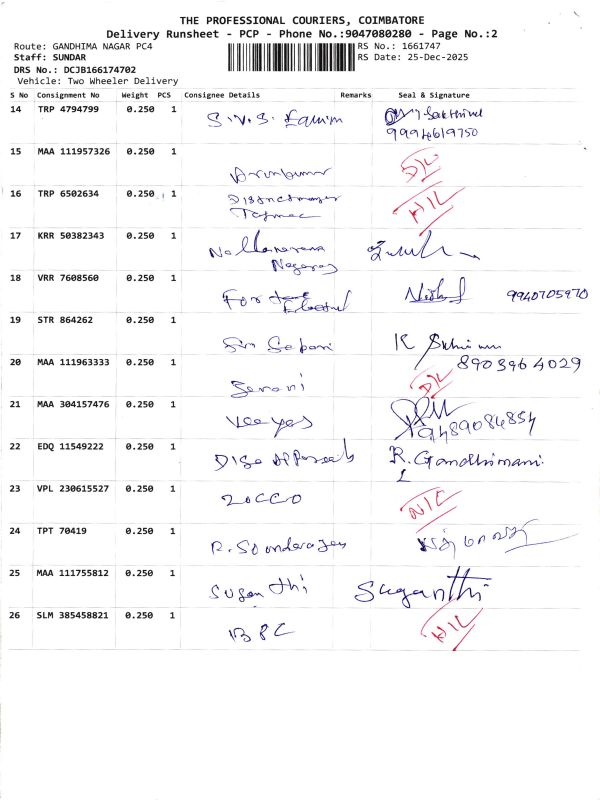 THE PROFESSIONAL COURIERS, COIMBATORE
Delivery Runsheet - PCP - Phone No.:9047080280 - Page No.:2
Route: GANDHIMA NAGAR PC4
RS No.: 1661747
Staff: SUNDAR
RS Date: 25-Dec-2025
DRS No.: DCJB166174702
Vehicle: Two Wheeler Delivery
S No Consignment No Weight PCS Consignee Details Remarks Seal & Signature
14 TRP 4794799 0.250 1 S.V.S. Sakthivel
9994619750
15 MAA 111957326 0.250 1 Arunkumar D/L
16 TRP 6502634 0.250 1 Districtmanager
Tasmac
17 KRR 50382343 0.250 1
Nagaraj
18 VRR 7608560 0.250 1 For Electrical 9940705970
19 STR 864262 0.250 1 Sri Sabari K
20 MAA 111963333 0.250 1 8903964029
D/L
21 MAA 304157476 0.250 1 Veeyes 9489084854
22 EDQ 11549222 0.250 1 R. Gandhimani
23 VPL 230615527 0.250 1 ZOCCO N/C
24 TPT 70419 0.250 1 R. Sounderajen
25 MAA 111755812 0.250 1 Suganthi Suganthi
26 SLM 385458821 0.250 1 BPC